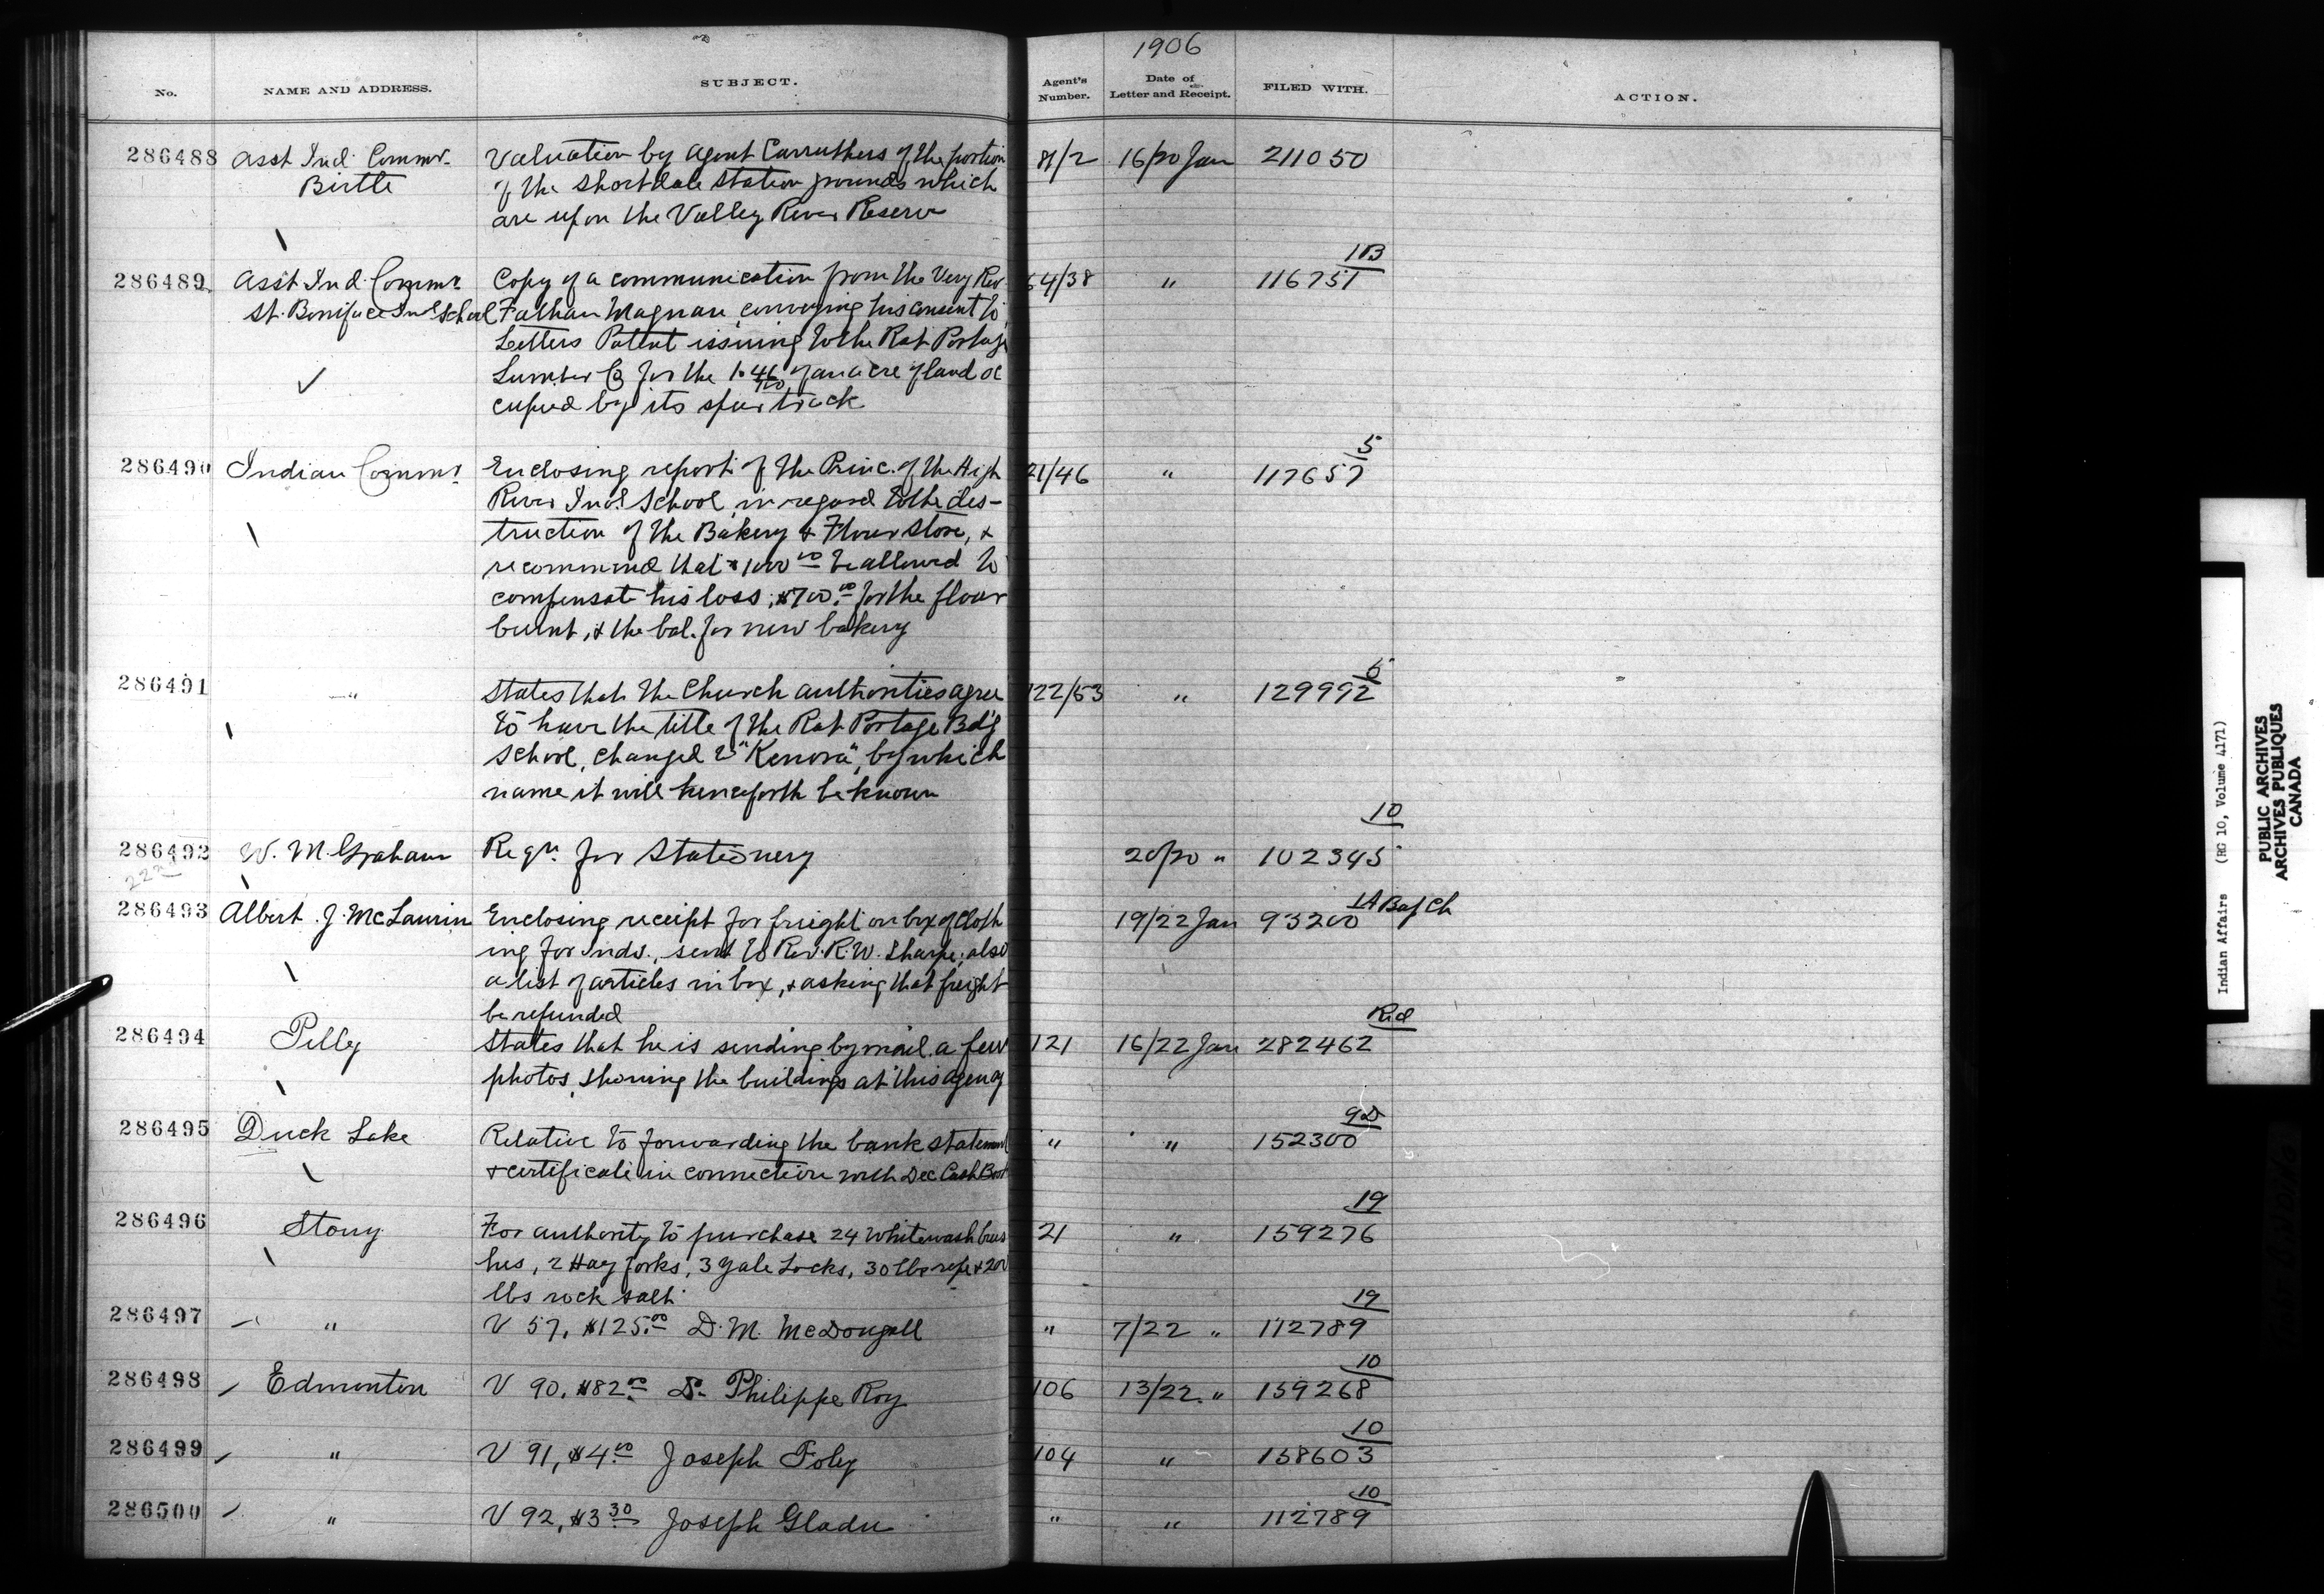 1906
No. NAME AND ADDRESS. SUBJECT. Agent's Number. Date of Letter and Receipt. FILED WITH. ACTION.
286488 Asst Ind. Commr. Valuation by Agent Carruthers of the portion 81/2 16/20 Jan 211050
Birtle of the Shortdale Station grounds which
are upon the Valley River Reserve
11B
286489 Asst Ind. Commr Copy of a communication from the Very Rev. 64/38 " 116751
St. Boniface Indl School Father Magnan, conveying his consent to
Letters Patent issuing to the Rat Portage
Lumber Co for the 1.46/100 of an acre of land oc
cupied by its spur track
5
286490 Indian Commr Enclosing report of the Princ. of the High 21/46 " 117657
River Indl School, in regard to the des-
truction of the Bakery & Flour store, &
recommend that $1000.00 be allowed to
compensate his loss; $700.00 for the flour
burnt, & the bal. for new bakery
5
286491 " States that the Church authorities agree 122/53 " 129992
to have the title of the Rat Portage Bd'g
School, changed to "Kenora", by which
name it will henceforth be known
10
286492 W. M. Graham Reqn. for Stationery 20/20 " 102345
222
1A Baf Ch
286493 Albert J. McLaurin Enclosing receipt for freight on box of Cloth 19/22 Jan 93200
ing for Inds., sent to Rev. R. W. Sharpe; also
a list of articles in box, & asking that freight
be refunded
Rid
286494 Pelly States that he is sending by mail a few 121 16/22 Jan 282462
photos, showing the buildings at this agency
9D
286495 Duck Lake Relative to forwarding the bank statement " " 152300
& certificate in connection with Dec. Cash Book
19
286496 Stony For authority to purchase 24 Whitewash brus 21 " 159276
hes, 2 Hay forks, 3 Yale Locks, 30 lbs rope & 200
lbs rock salt
19
286497 " V 57, $125.00 D. M. McDougall " 7/22 " 112789
10
286498 Edmonton V 90, $82.00 Dr. Philippe Roy 106 13/22 " 159268
10
286499 " V 91, $4.00 Joseph Foley 104 " 158603
10
286500 " V 92, $3.30 Joseph Gladu " " 112789
Indian Affairs (RG 10, Volume 4171)
PUBLIC ARCHIVES
ARCHIVES PUBLIQUES
CANADA